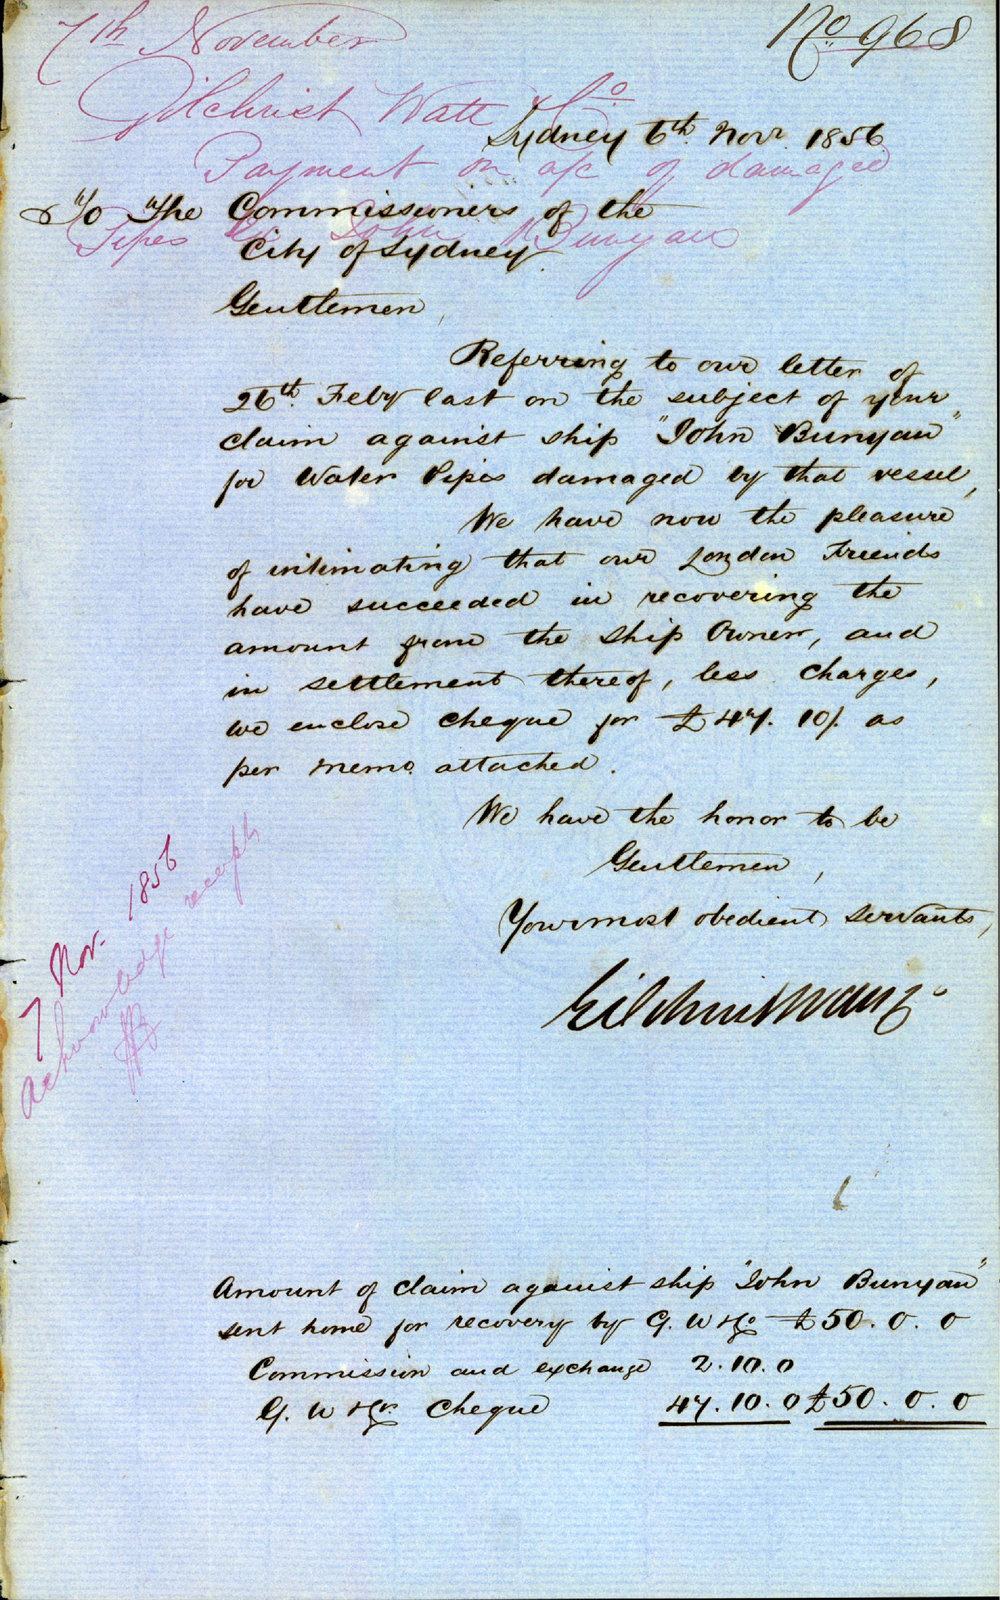 7th November
No 968
Gilchrist Watt & Co
Sydney 6th Novr 1856
Payment on a/c of damaged
To The Commissioners of the
Pipes John Bunyan
City of Sydney.
Gentlemen,
Referring to our letter of
26th Feby last on the subject of your
claim against ship "John Bunyan"
for Water Pipes damaged by that vessel,
We have now the pleasure
of intimating that our London Friends
have succeeded in recovering the
amount from the Ship Owner, and
in settlement thereof, less charges,
we enclose cheque for £47. 10/. as
per memo. attached.
We have the honor to be
Gentlemen,
Your most obedient servants,
Gilchrist Watt & Co
7 Nov. 1856
Acknowledge receipt
Amount of claim against ship "John Bunyan"
sent home for recovery by G. W & Co £50. 0. 0
Commission and exchange 2. 10. 0
G. W & Co cheque 47. 10. 0 £50. 0. 0